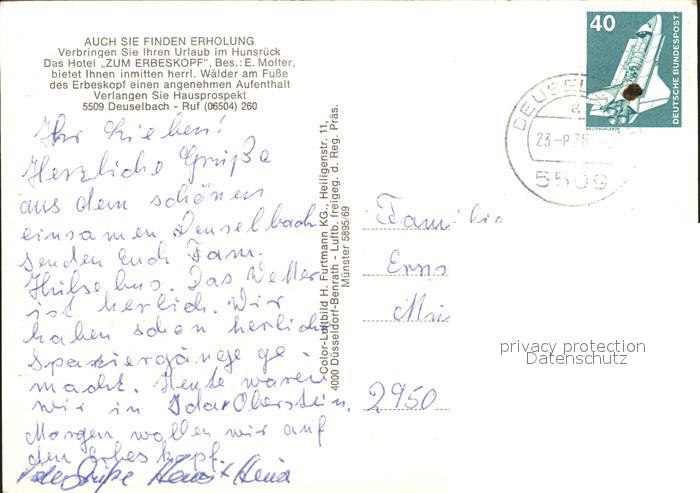 AUCH SIE FINDEN ERHOLUNG
Verbringen Sie Ihren Urlaub im Hunsrück
Das Hotel „ZUM ERBESKOPF", Bes.: E. Molter,
bietet Ihnen inmitten herrl. Wälder am Fuße
des Erbeskopf einen angenehmen Aufenthalt
Verlangen Sie Hausprospekt
5509 Deuselbach - Ruf (06504) 260
Ihr Lieben!
Herzliche Grüße
aus dem schönen
einsamen Deuselbach
senden Euch Fam.
Hülsebus. Das Wetter
ist herlich. Wir
haben schon herliche
Spaziergänge ge-
macht. Heute waren
wir in Idar Oberstein.
Morgen wollen wir auf
den Erbeskopf.
Color-Luftbild H. Furtmann KG., Heiligenstr. 11,
4000 Düsseldorf-Benrath - Luftb. freigeg. d. Reg. Präs.
Münster 5895/69
40
DEUTSCHE BUNDESPOST
WELTRAUMLABOR
23.-8.78
5509
Familie
Erns
2950
privacy protection
Datenschutz